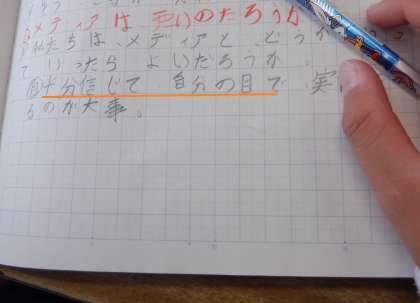 メディアは悪いのだろうか
私たちは、メディアと、どうか
ていったらよいだろうか。
半分信じて自分の目で実
るのが大事。